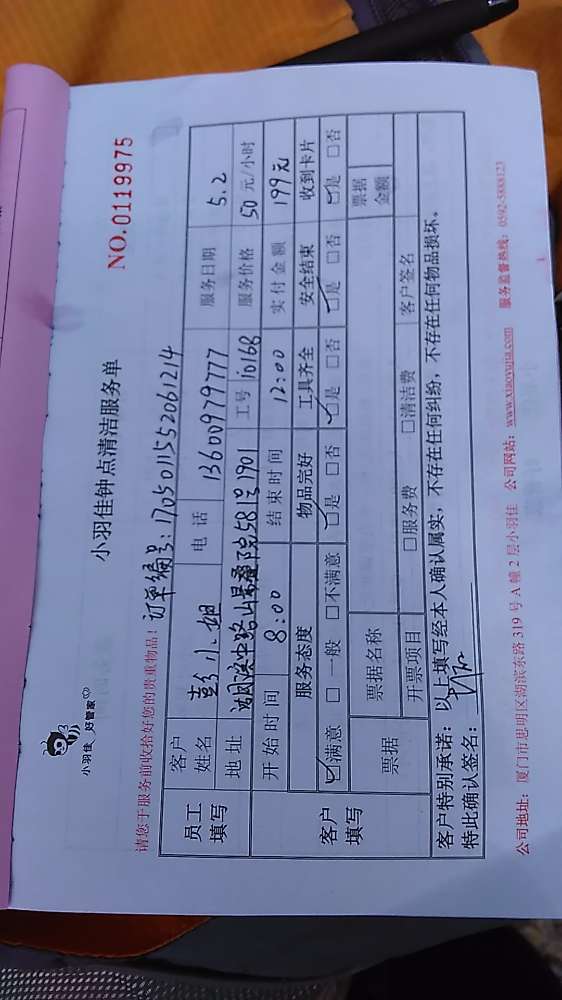 小羽佳 好管家
小羽佳钟点清洁服务单
NO.0119975
请您于服务前收拾好您的贵重物品!
订单编号:170501155206 1214
员工填写
客户姓名 彭小姐 电话 13600979777 服务日期 5.2
地址 路山景叠院58号1901 工号 10168 服务价格 50 元/小时
开始时间 8:00 结束时间 12:00 实付金额 199元
客户填写
服务态度 物品完好 工具齐全 安全结束 收到卡片
☑满意 □一般 □不满意 ☑是 □否 ☑是 □否 ☑是 □否 ☑是 □否
票据 票据名称 票据金额
开票项目 □服务费 □清洁费 客户签名
客户特别承诺:以上填写经本人确认属实,不存在任何纠纷,不存在任何物品损坏。
特此确认签名:
公司地址:厦门市思明区湖滨东路 319 号 A 幢 2 层小羽佳 公司网站:www.xiaoyujia.com 服务监督热线:0592-5888123